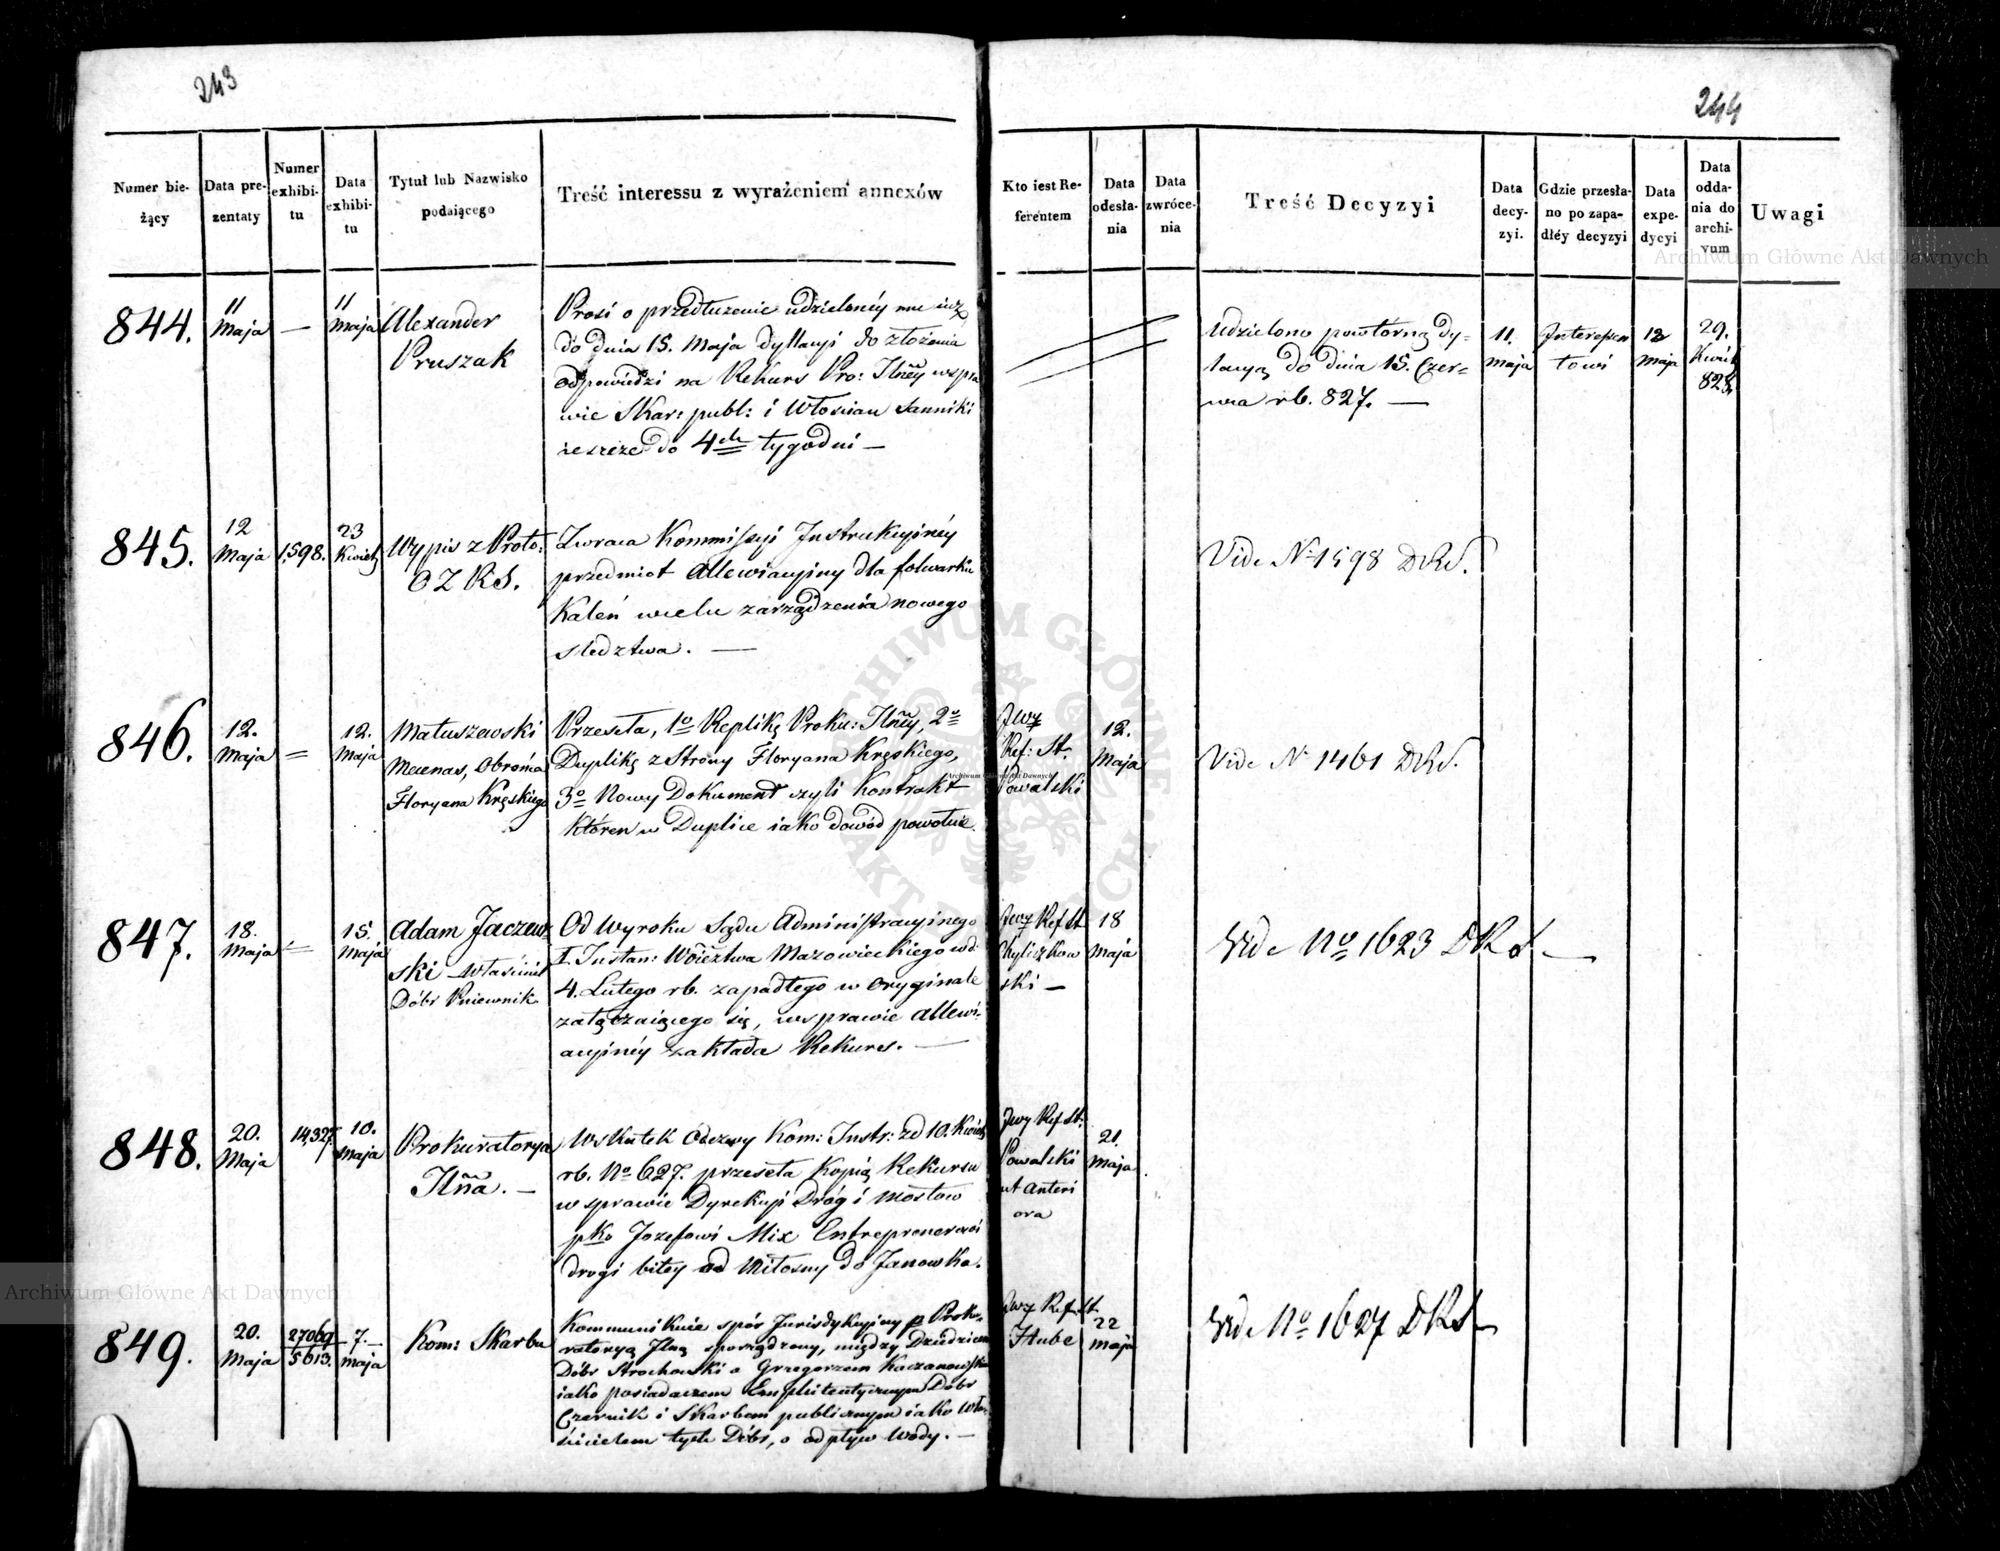 243
244
Numer bie-
żący
Data pre-
zentaty
Numer
exhibi-
tu
Data
exhibi-
tu
Tytuł lub Nazwisko
podaiącego
Treść interessu z wyrażeniem annexów
Kto iest Re-
ferentem
Data
odesła-
nia
Data
zwróce-
nia
Treść Decyzyi
Data
decy-
zyi.
Gdzie przesła-
no po zapa-
dłéy decyzyi
Data
expe-
dycyi
Data
odda-
nia do
archi-
vum
Uwagi
844.
11
Maja
—
11
Maja
Alexander
Pruszak
Prosi o przedłużenie udzielonéy mu iuż
do dnia 15. Maja dyllacyi do złożenia
odpowiedzi na Rekurs Pro: Jlnéy wspra
wie Skar: publ: i Włościan Sanniki
ieszcze do 4ch tygodni —
Udzielono powtórną dy-
lacyą do dnia 15. Czer-
wca rb. 827. —
11.
maja
Interessen
towi
12
Maja
29.
Kwiet
828.
845.
12
Maja
1,598.
23
Kwiet
Wypis z Proto:
OZRS.
Zwraca Kommissyi Instrukcyinéy
przedmiot allewiacyiny dla folwarku
Kaleń wcelu zarządzenia nowego
sledztwa. —
Vide No 1598 DRS.
846.
12.
Maja
=
12.
Maja
Matuszewski
Mecenas, Obrońca
Floryana Kręskiego
Przeseła, 1o Replikę Proku: Jlnéy, 2o
Duplikę z Strony Floryana Kręskiego,
3o Nowy Dokument czyli Kontrakt
któren w Duplice iako dowód powołuie.
Jwy
Ref: St.
Powalski
12.
Maja
Vide No 1461 DRS.
847.
18.
Maja
=
15.
Maja
Adam Jaczew
ski — właściciel
Dóbr Pniewnik
Od Wyroku Sądu Administracyinego
I. Instan: Wóieztwa Mazowieckiego wd.
4. Lutego rb. zapadłego w oryginale
załączaiącego się, wsprawie allewi-
acyinéy zakłada Rekurs. —
Jwy Ref St
Kyliszkow
ski —
18
Maja
Vide No 1623 DRS. —
848.
20.
Maja
14,327.
10.
Maja
Prokuratorya
Jlna. —
Wskutek Odezwy Kom: Instr: zd 10. Kwiet
rb. No 627. przeseła Kopią Rekursu
w sprawie Dyrekcyi Dróg i mostow
pko Jozefowi Mix Entreprenerowi
drogi bitey od Miłosny do Janowka.
Jwy Ref St.
Powalski
ut anteri
ora
21.
Maja
849.
20.
Maja
27069
5613.
7.
Maja
Kom: Skarbu
Kommunikuie spór Jurisdykcyiny p Proku-
ratoryą Jlną sporządzony, między Dziedzicem
Dóbr Strochowski a Grzegorzem Kaczanowskim
iako posiadaczem Emphiteutycznym Dóbr
Czernik i Skarbem publicznym iako Wła-
ścicielem tych Dóbr, o odpływ Wody. —
Jwy Ref. St.
Hube
22
maja
Vide No 1627 DRS —
Archiwum Główne Akt Dawnych
Archiwum Główne Akt Dawnych
Archiwum Główne Akt Dawnych
ARCHIWUM GŁÓWNE AKT DAWNYCH